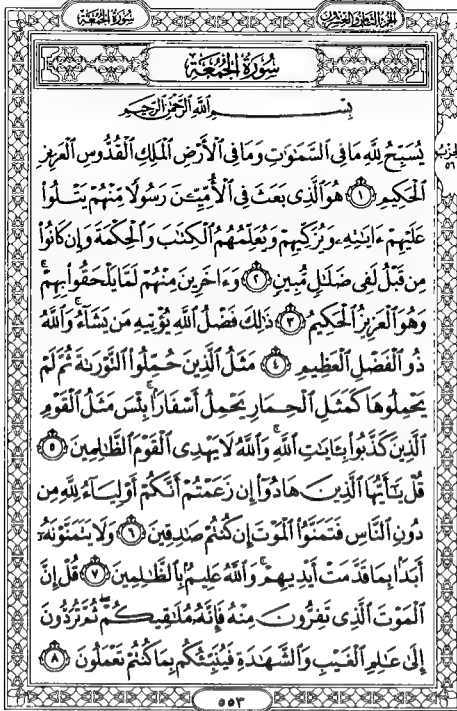 الجزء الثامن والعشرون سورة الجمعة
سورة الجمعة
بسم الله الرحمن الرحيم
يُسَبِّحُ لِلَّهِ مَا فِي ٱلسَّمَٰوَٰتِ وَمَا فِي ٱلْأَرْضِ ٱلْمَلِكِ ٱلْقُدُّوسِ ٱلْعَزِيزِ
ٱلْحَكِيمِ ١ هُوَ ٱلَّذِي بَعَثَ فِي ٱلْأُمِّيِّـۧنَ رَسُولًا مِّنْهُمْ يَتْلُوا۟
عَلَيْهِمْ ءَايَٰتِهِۦ وَيُزَكِّيهِمْ وَيُعَلِّمُهُمُ ٱلْكِتَٰبَ وَٱلْحِكْمَةَ وَإِن كَانُوا۟
مِن قَبْلُ لَفِي ضَلَٰلٍ مُّبِينٍ ٢ وَءَاخَرِينَ مِنْهُمْ لَمَّا يَلْحَقُوا۟ بِهِمْ ۚ
وَهُوَ ٱلْعَزِيزُ ٱلْحَكِيمُ ٣ ذَٰلِكَ فَضْلُ ٱللَّهِ يُؤْتِيهِ مَن يَشَآءُ ۚ وَٱللَّهُ
ذُو ٱلْفَضْلِ ٱلْعَظِيمِ ٤ مَثَلُ ٱلَّذِينَ حُمِّلُوا۟ ٱلتَّوْرَىٰةَ ثُمَّ لَمْ
يَحْمِلُوهَا كَمَثَلِ ٱلْحِمَارِ يَحْمِلُ أَسْفَارًۢا ۚ بِئْسَ مَثَلُ ٱلْقَوْمِ
ٱلَّذِينَ كَذَّبُوا۟ بِـَٔايَٰتِ ٱللَّهِ ۚ وَٱللَّهُ لَا يَهْدِي ٱلْقَوْمَ ٱلظَّٰلِمِينَ ٥
قُلْ يَٰٓأَيُّهَا ٱلَّذِينَ هَادُوٓا۟ إِن زَعَمْتُمْ أَنَّكُمْ أَوْلِيَآءُ لِلَّهِ مِن
دُونِ ٱلنَّاسِ فَتَمَنَّوُا۟ ٱلْمَوْتَ إِن كُنتُمْ صَٰدِقِينَ ٦ وَلَا يَتَمَنَّوْنَهُۥٓ
أَبَدًۢا بِمَا قَدَّمَتْ أَيْدِيهِمْ ۚ وَٱللَّهُ عَلِيمٌۢ بِٱلظَّٰلِمِينَ ٧ قُلْ إِنَّ
ٱلْمَوْتَ ٱلَّذِي تَفِرُّونَ مِنْهُ فَإِنَّهُۥ مُلَٰقِيكُمْ ۖ ثُمَّ تُرَدُّونَ
إِلَىٰ عَٰلِمِ ٱلْغَيْبِ وَٱلشَّهَٰدَةِ فَيُنَبِّئُكُم بِمَا كُنتُمْ تَعْمَلُونَ ٨
٥٥٣
الحزب
٥٦